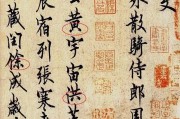 文
散騎侍郎周
黃宇宙洪荒
辰宿列張寒来
藏閏餘成歲